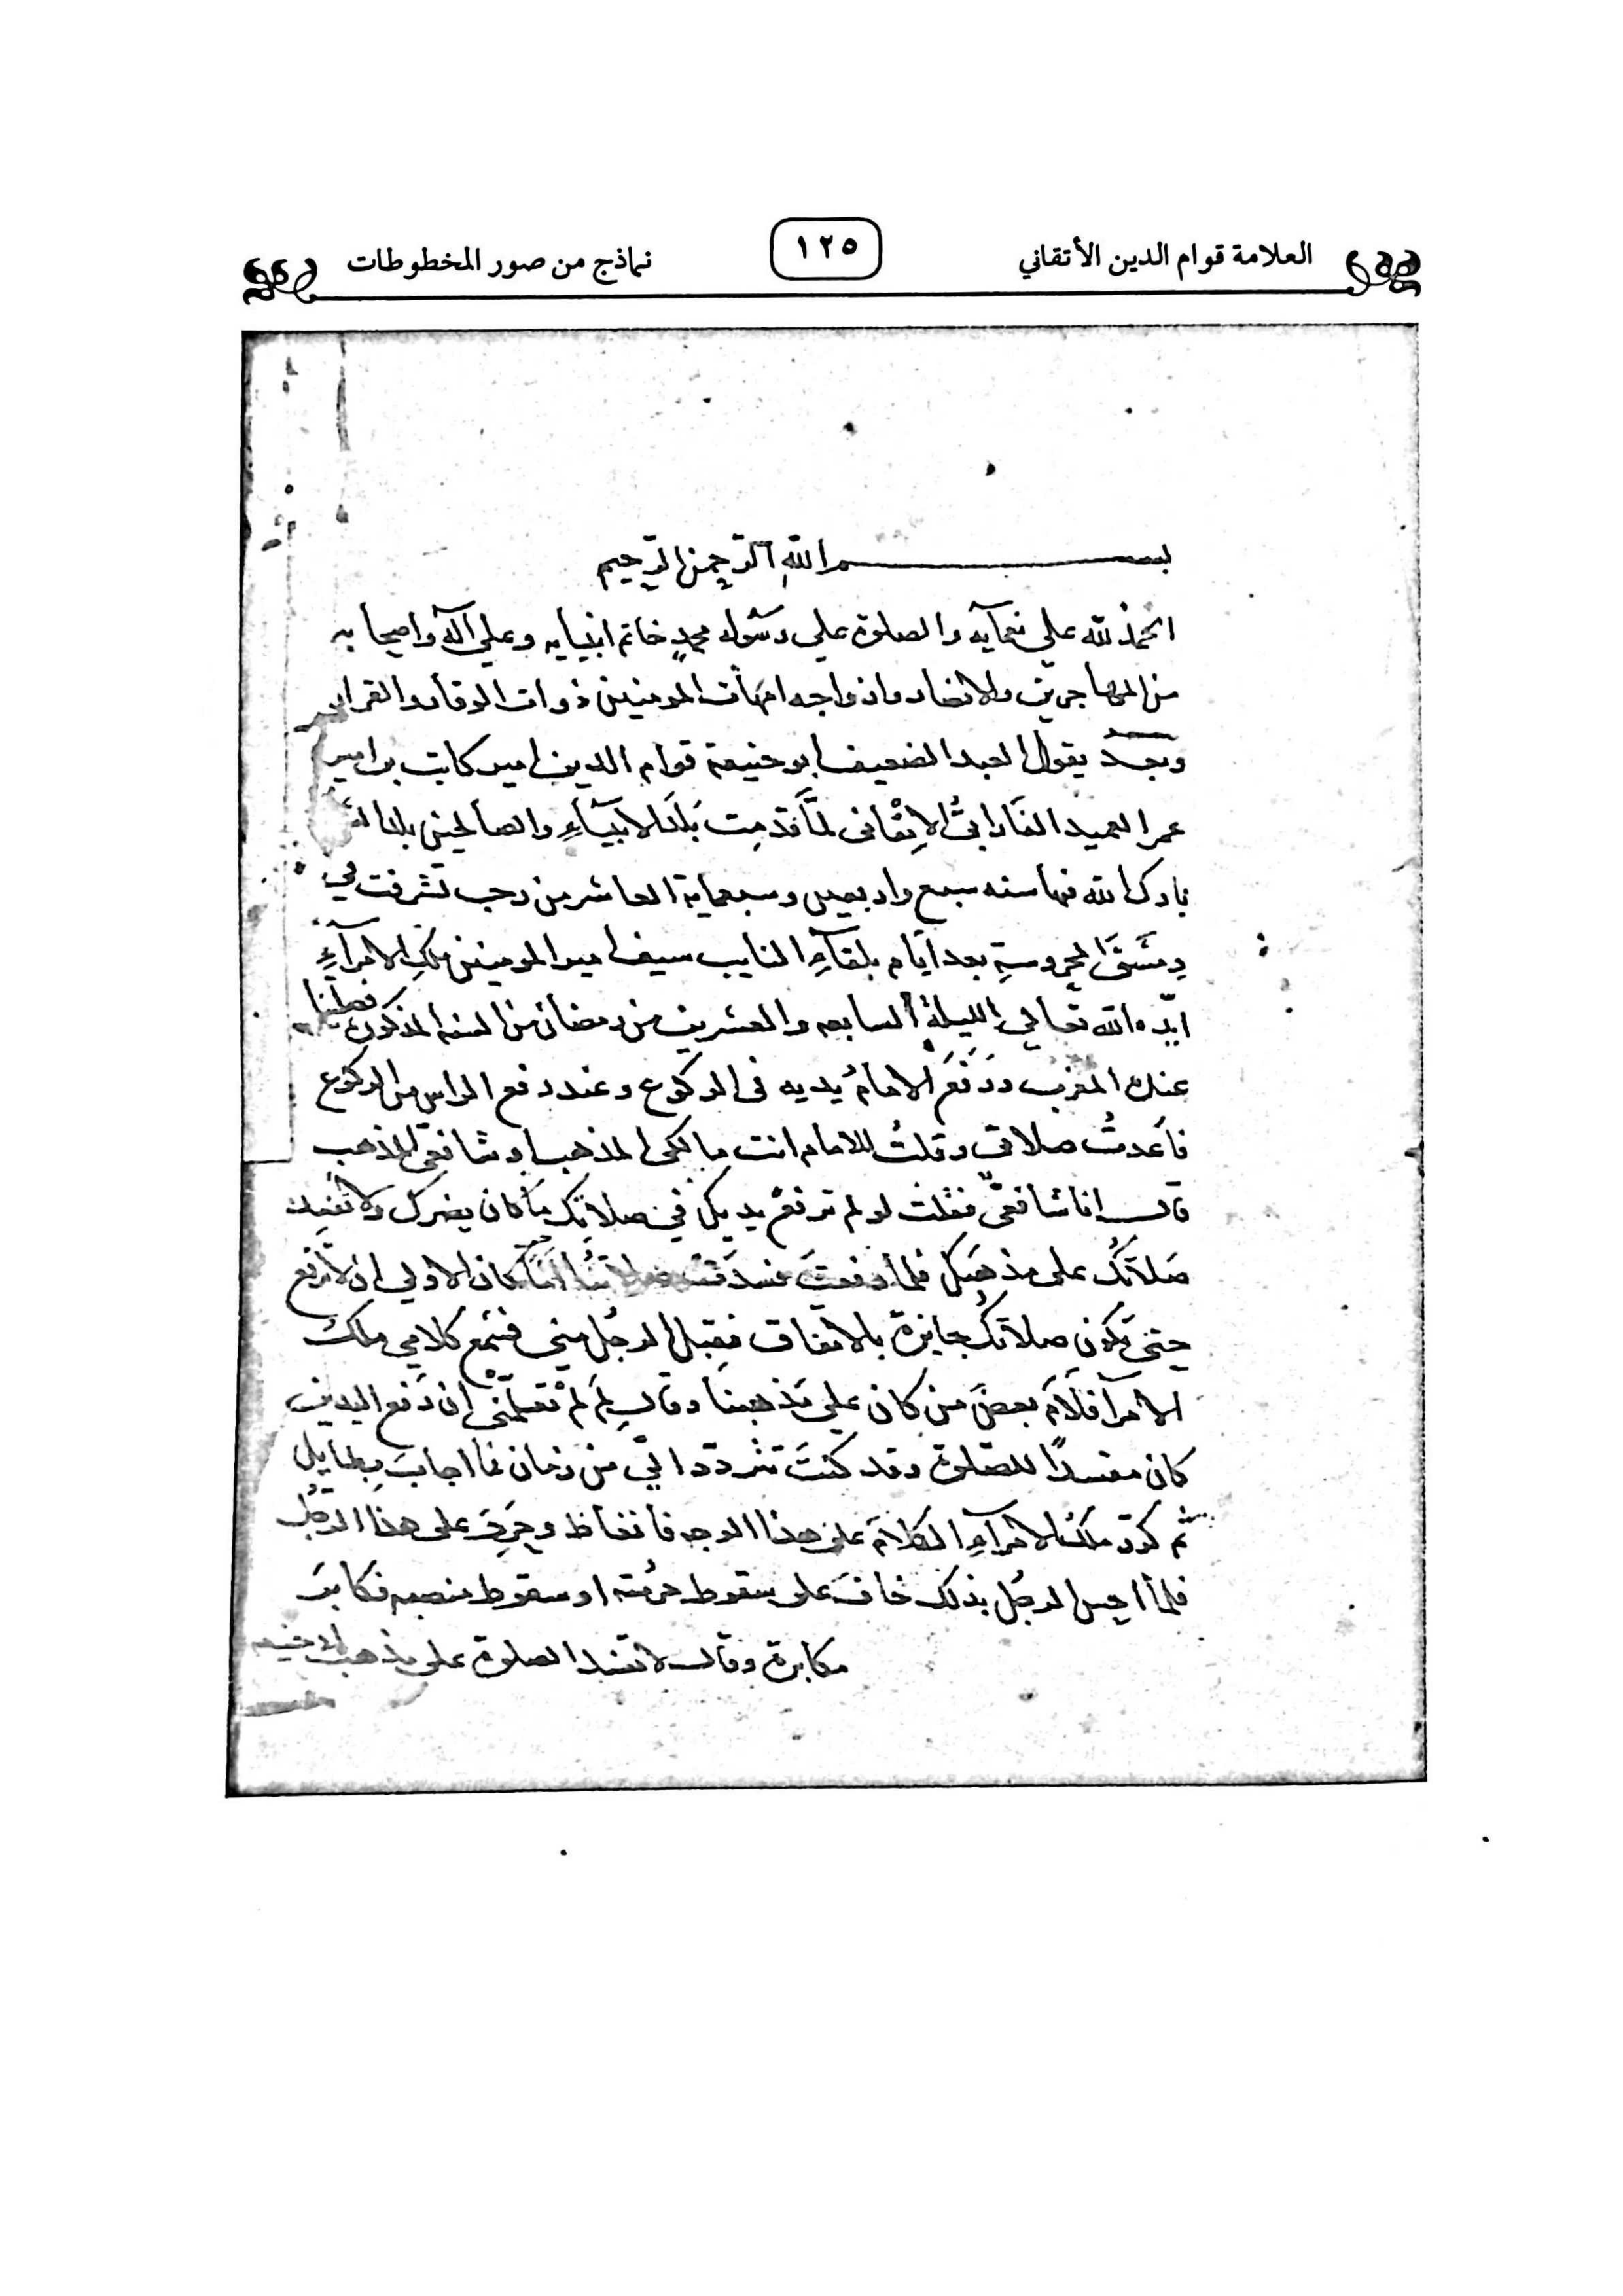 العلامة قوام الدين الأتقاني
١٢٥
نماذج من صور المخطوطات
بسم الله الرحمن الرحيم
الحمد لله على نعمآيه والصلوة على رسوله محمدٍ خاتم انبيايه وعلى آله واصحابه
من المهاجرين والانصار وازواجه امهات المومنين ذوات الوقار والقرار
وبعد يقول العبد الضعيف ابو حنيفة قوام الدين امير كاتب بن امير
عمر العميد الفارابيُّ الاتِقْانى لمَّا قدمت بلد الانبيآءِ والصالحين
بارك الله فيها سنه سبع واربعين وسبعماية العاشر من رجب تشرفت في
دِمَشقَ المحروسةِ بعد ايّام بلقآءِ النايب سيف امير المومنين ملكِ الامرآءِ
ايّده الله تعالى الليلة السابعه والعشرين من رمضان من السنه المذكورة فصلّينا
عنده المغرب ورَفَعَ الامامُ يديه فى الركوع وعند رفع الراس من الركوع
فاَعدتُ صلاتي وقلتُ للامام انت مالكى المذهب او شافعى المذهب
قال انا شافعىٌّ فقلت لو لم ترفع يديك في صلاتِك ما كان يضرك ولا تفسد
صَلاتُك على مذهبِك فلما رفعتَ فسدَت كان الاولى ان لا ترفع
حتى تكون صلاتك جايزة بالاتفاق فقبل الرجُل مني فسَمع كلامي ملك
الامرآ فلاَمَ بعضَ من كان على مَذهبنا وقال لِمَ لمْ تعلّمْنى ان رَفع اليدين
كان مفسدًا للصّلوة وقد كنتَ تتردّد الىّ من زمان فما اجابَ بِطايِلٍ
ثم كرّر ملكُ الامرآءِ الكلامَ على هذا الوجه فانغاظ وحَرِدَ على هذا الرجُل
فلما احس الرجُل بذلك خاف على سقوط حرُمته او سقوط منصبه فكابَرَ
مكابرة وقال لا تفسد الصلوة على مذهب